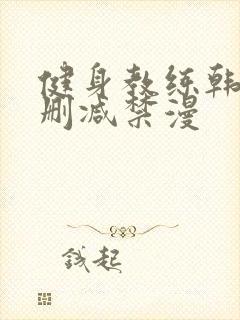 健身教练韩
删减禁漫
钱起